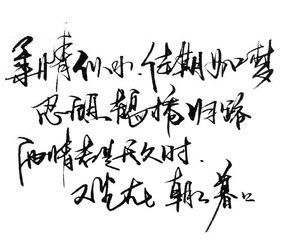 柔情似水.佳期如梦
忍顾鹊桥归路
两情若是长久时.
又岂在朝朝暮暮